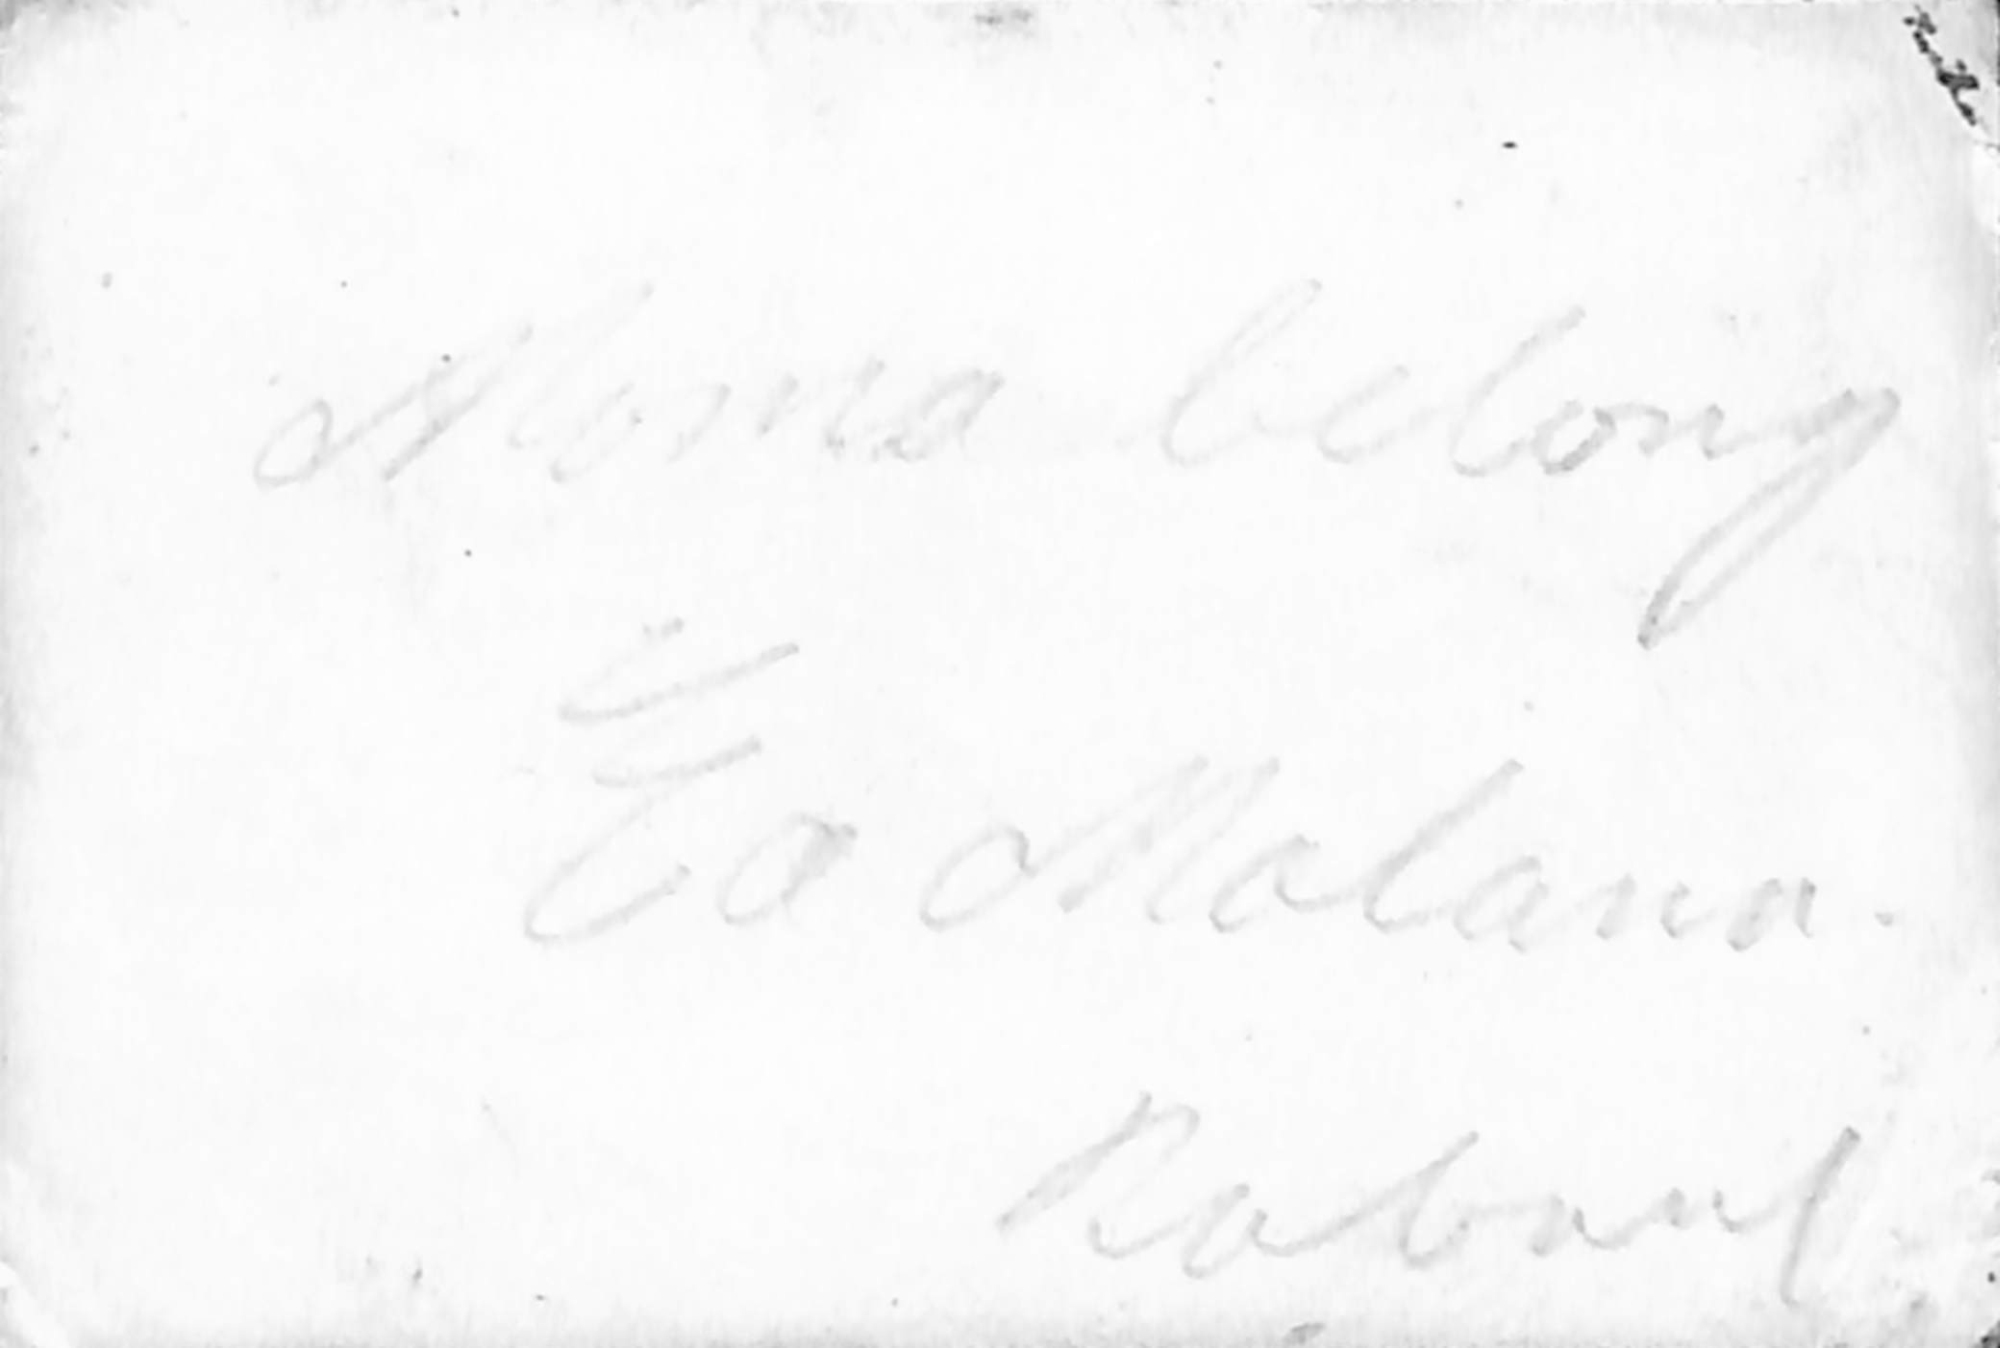 belong
To Malana.
Rabaul